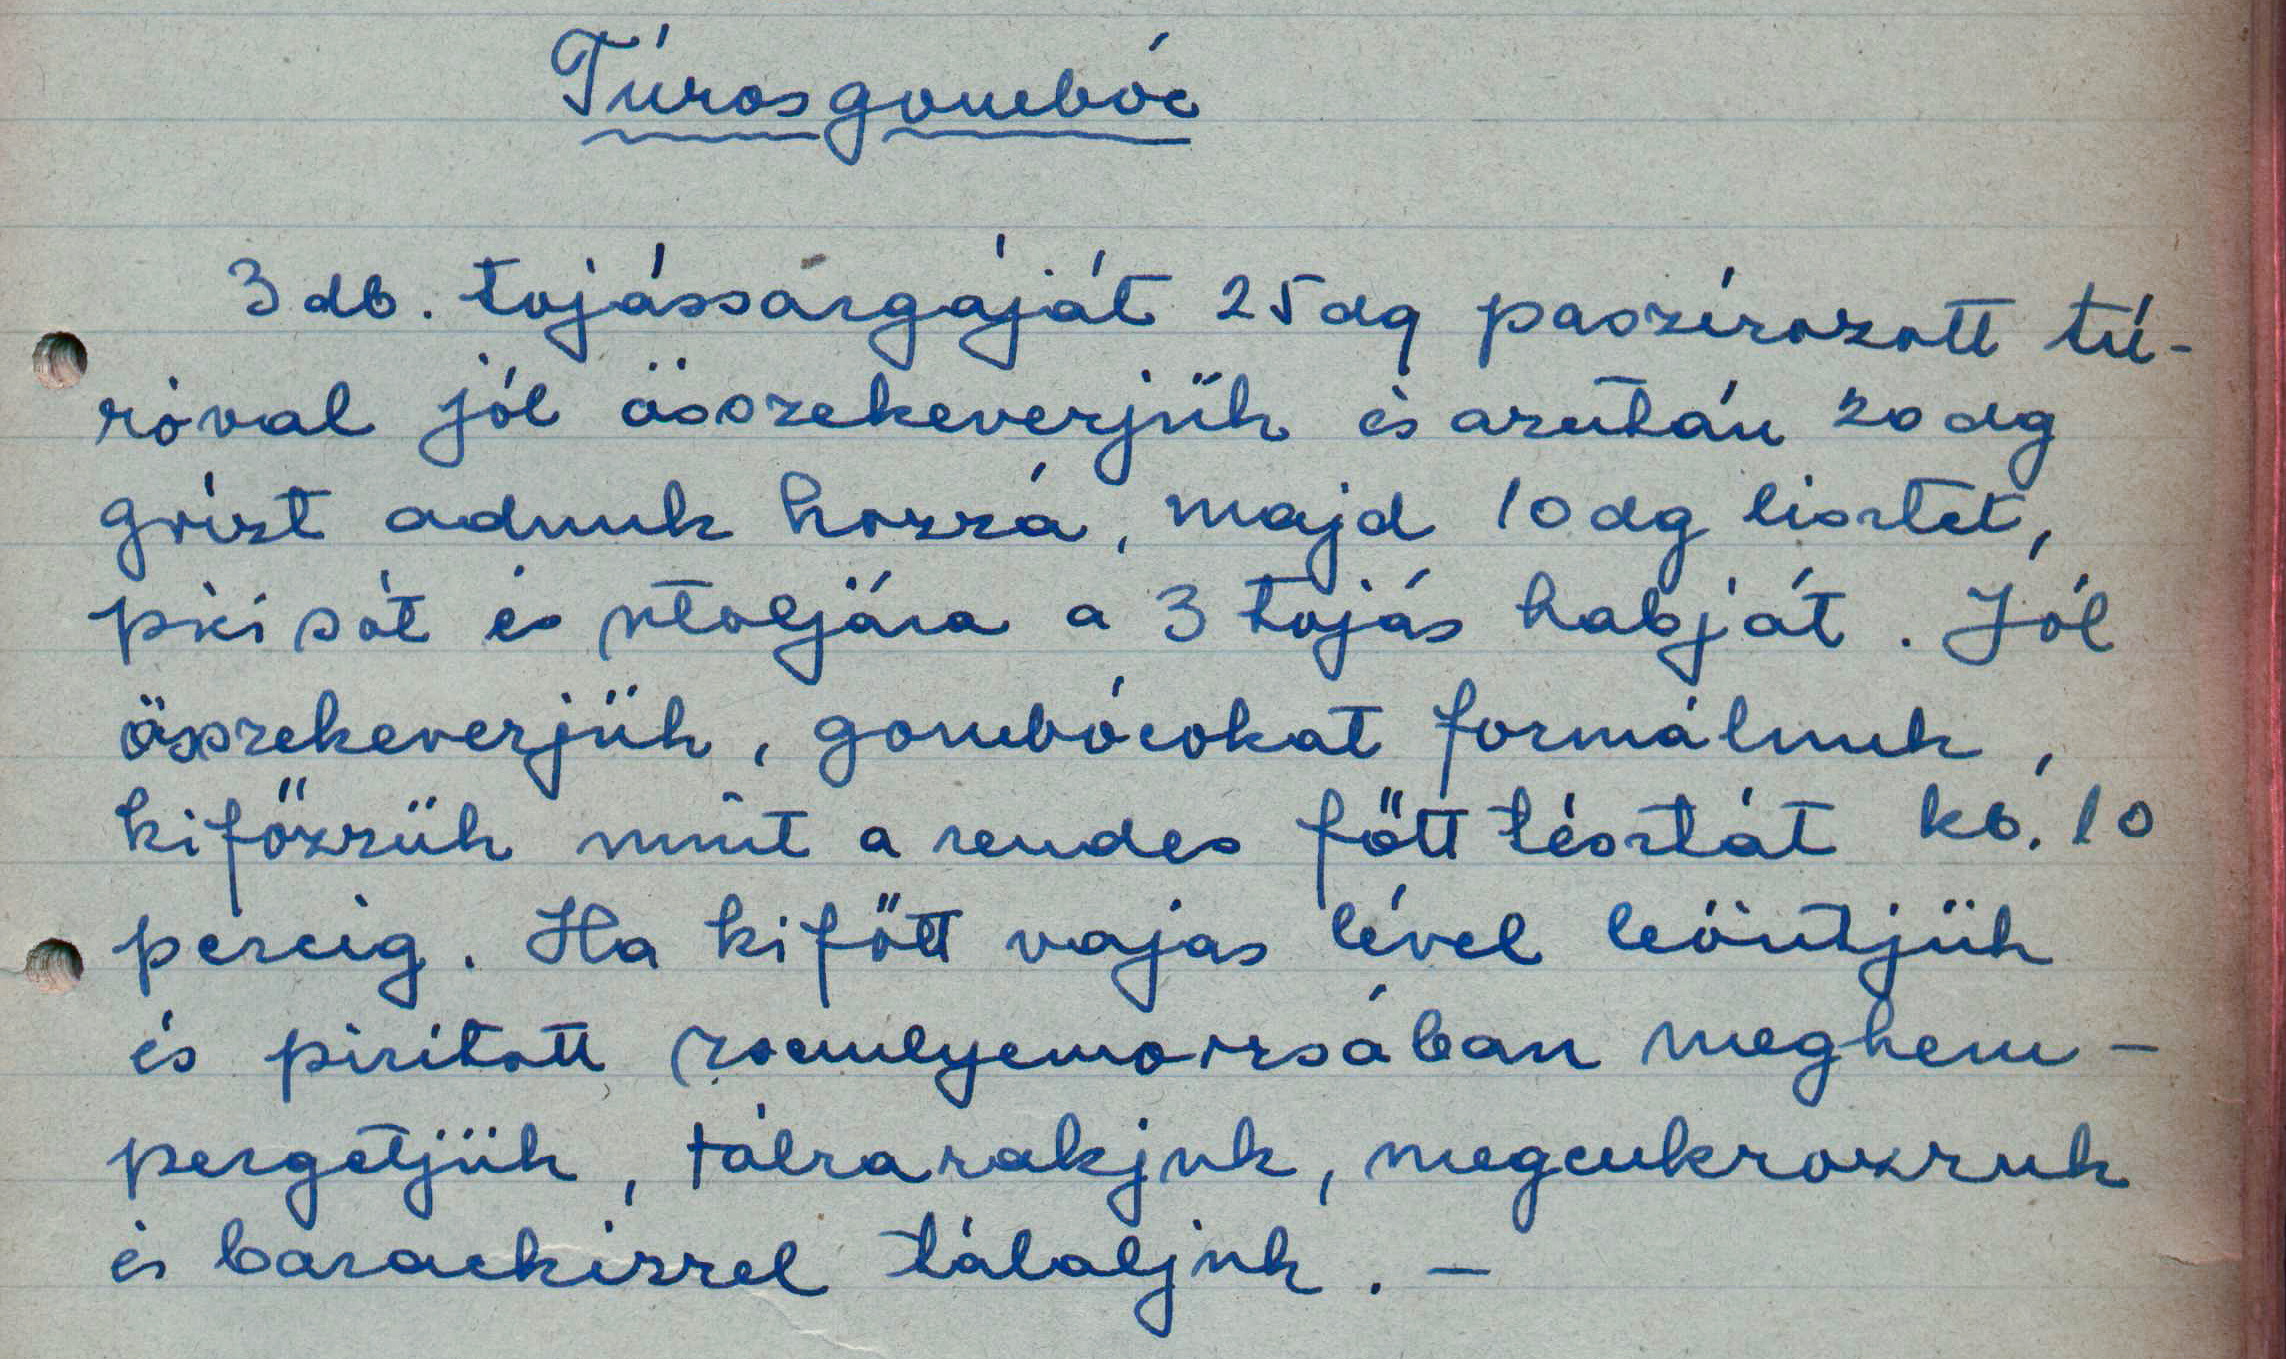 Túrosgombóc
3 db. tojássárgáját 25 dg paszírozott tú-
róval jól összekeverjük és azután 20 dg
grízt adunk hozzá, majd 10 dg lisztet,
pici sót és utoljára a 3 tojás habját. Jól
összekeverjük, gombócokat formálunk,
kifőzzük mint a rendes főtt tésztát kb. 10
percig. Ha kifőtt vajas lével leöntjük
és pirított zsemlyemorzsában meghem-
pergetjük, tálra rakjuk, megcukrozzuk
és barackízzel tálaljuk. —